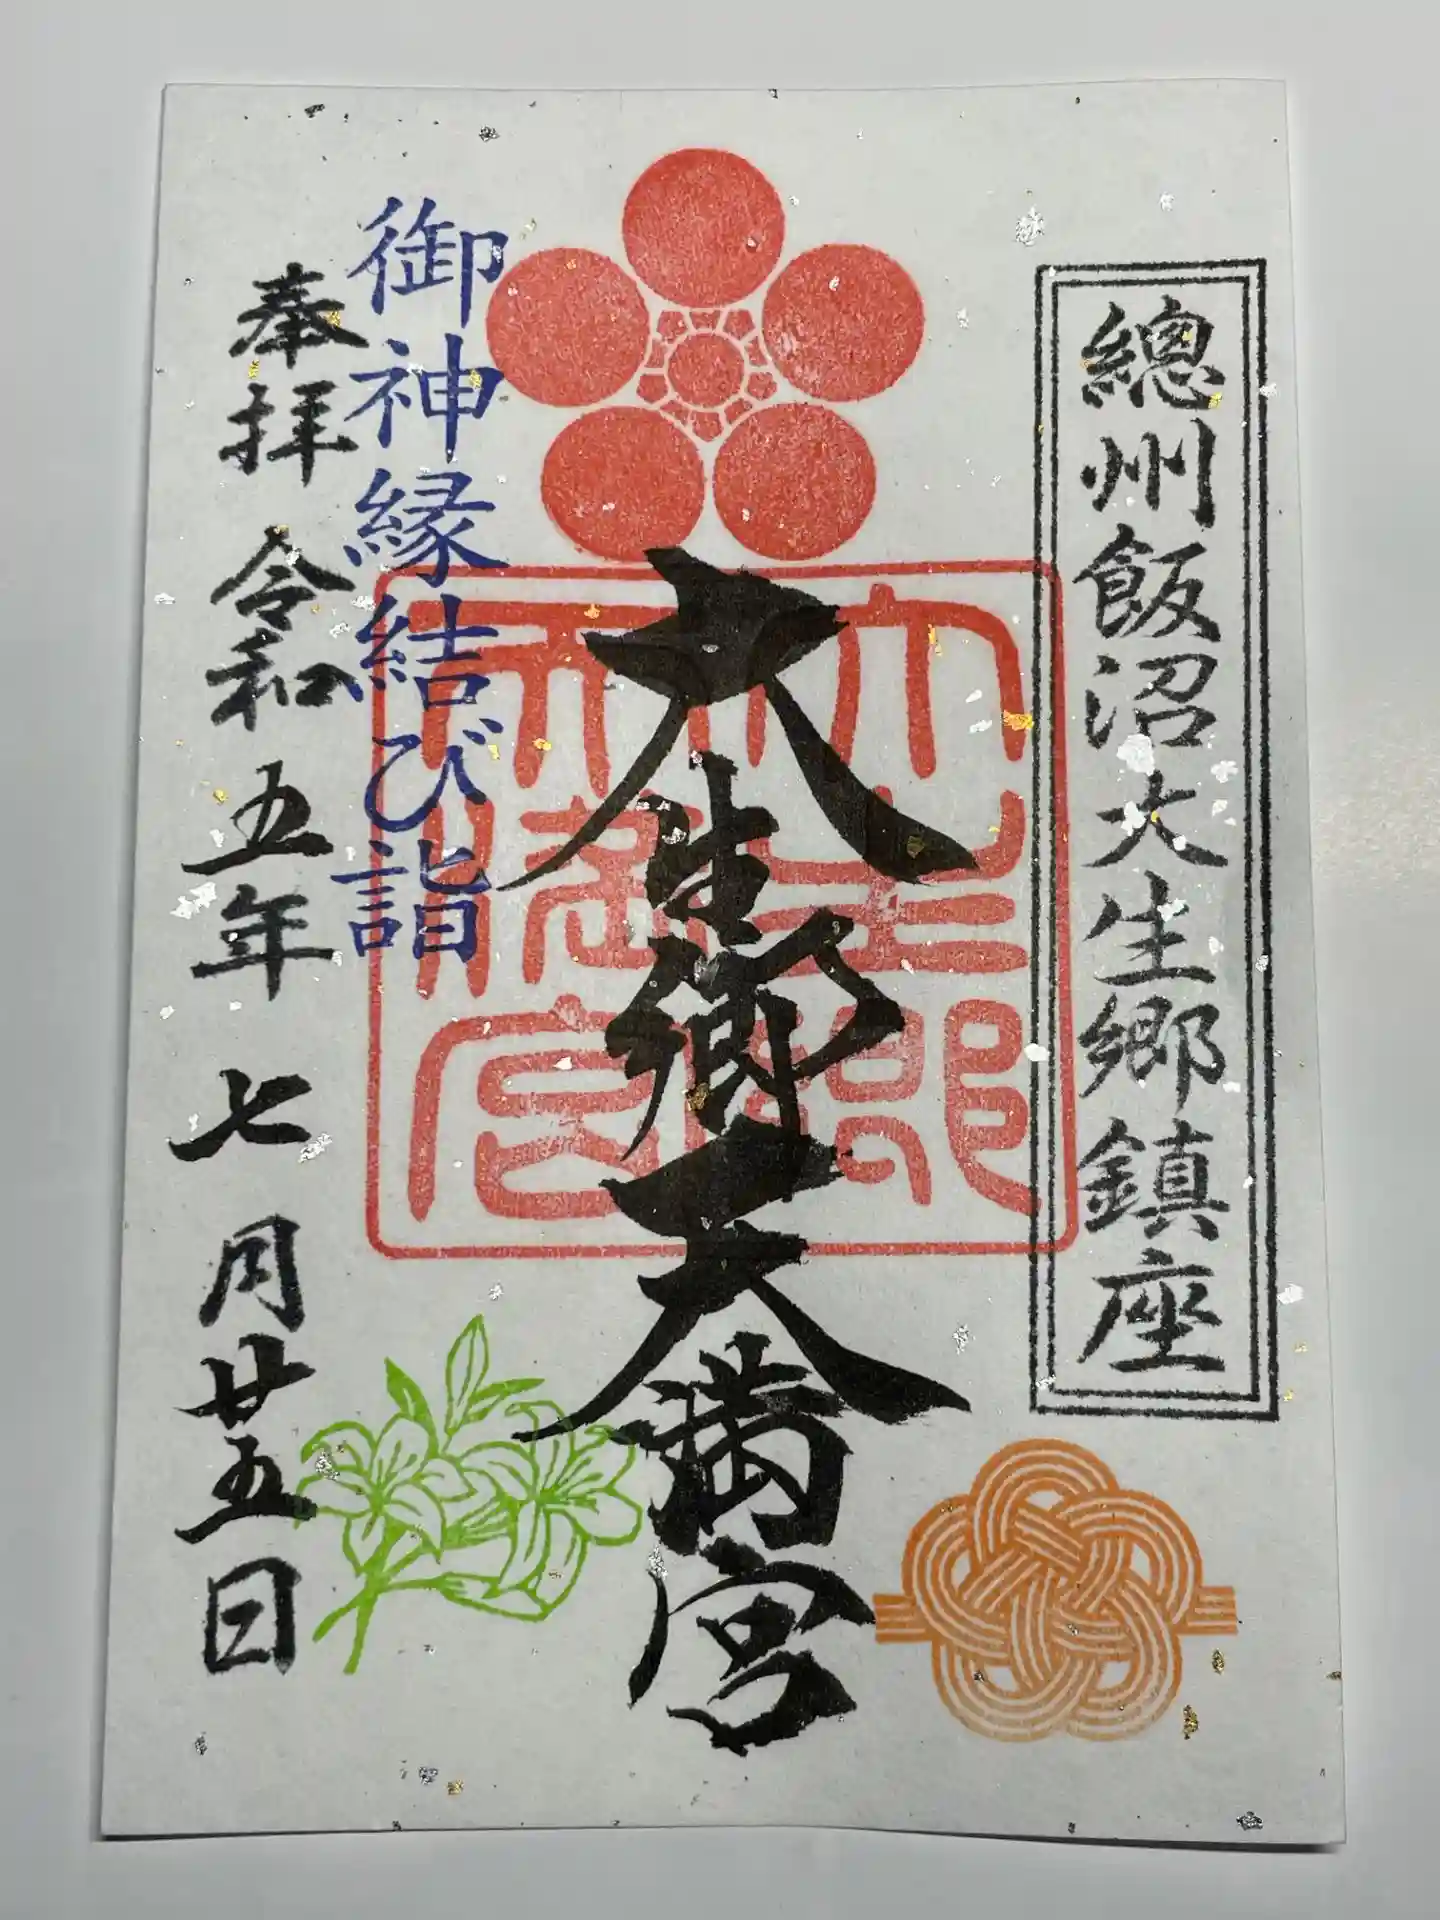 總州飯沼大生郷鎮座
大生郷天満宮
大生郷
天満宮
御神縁結び詣
奉拝 令和五年七月廿五日